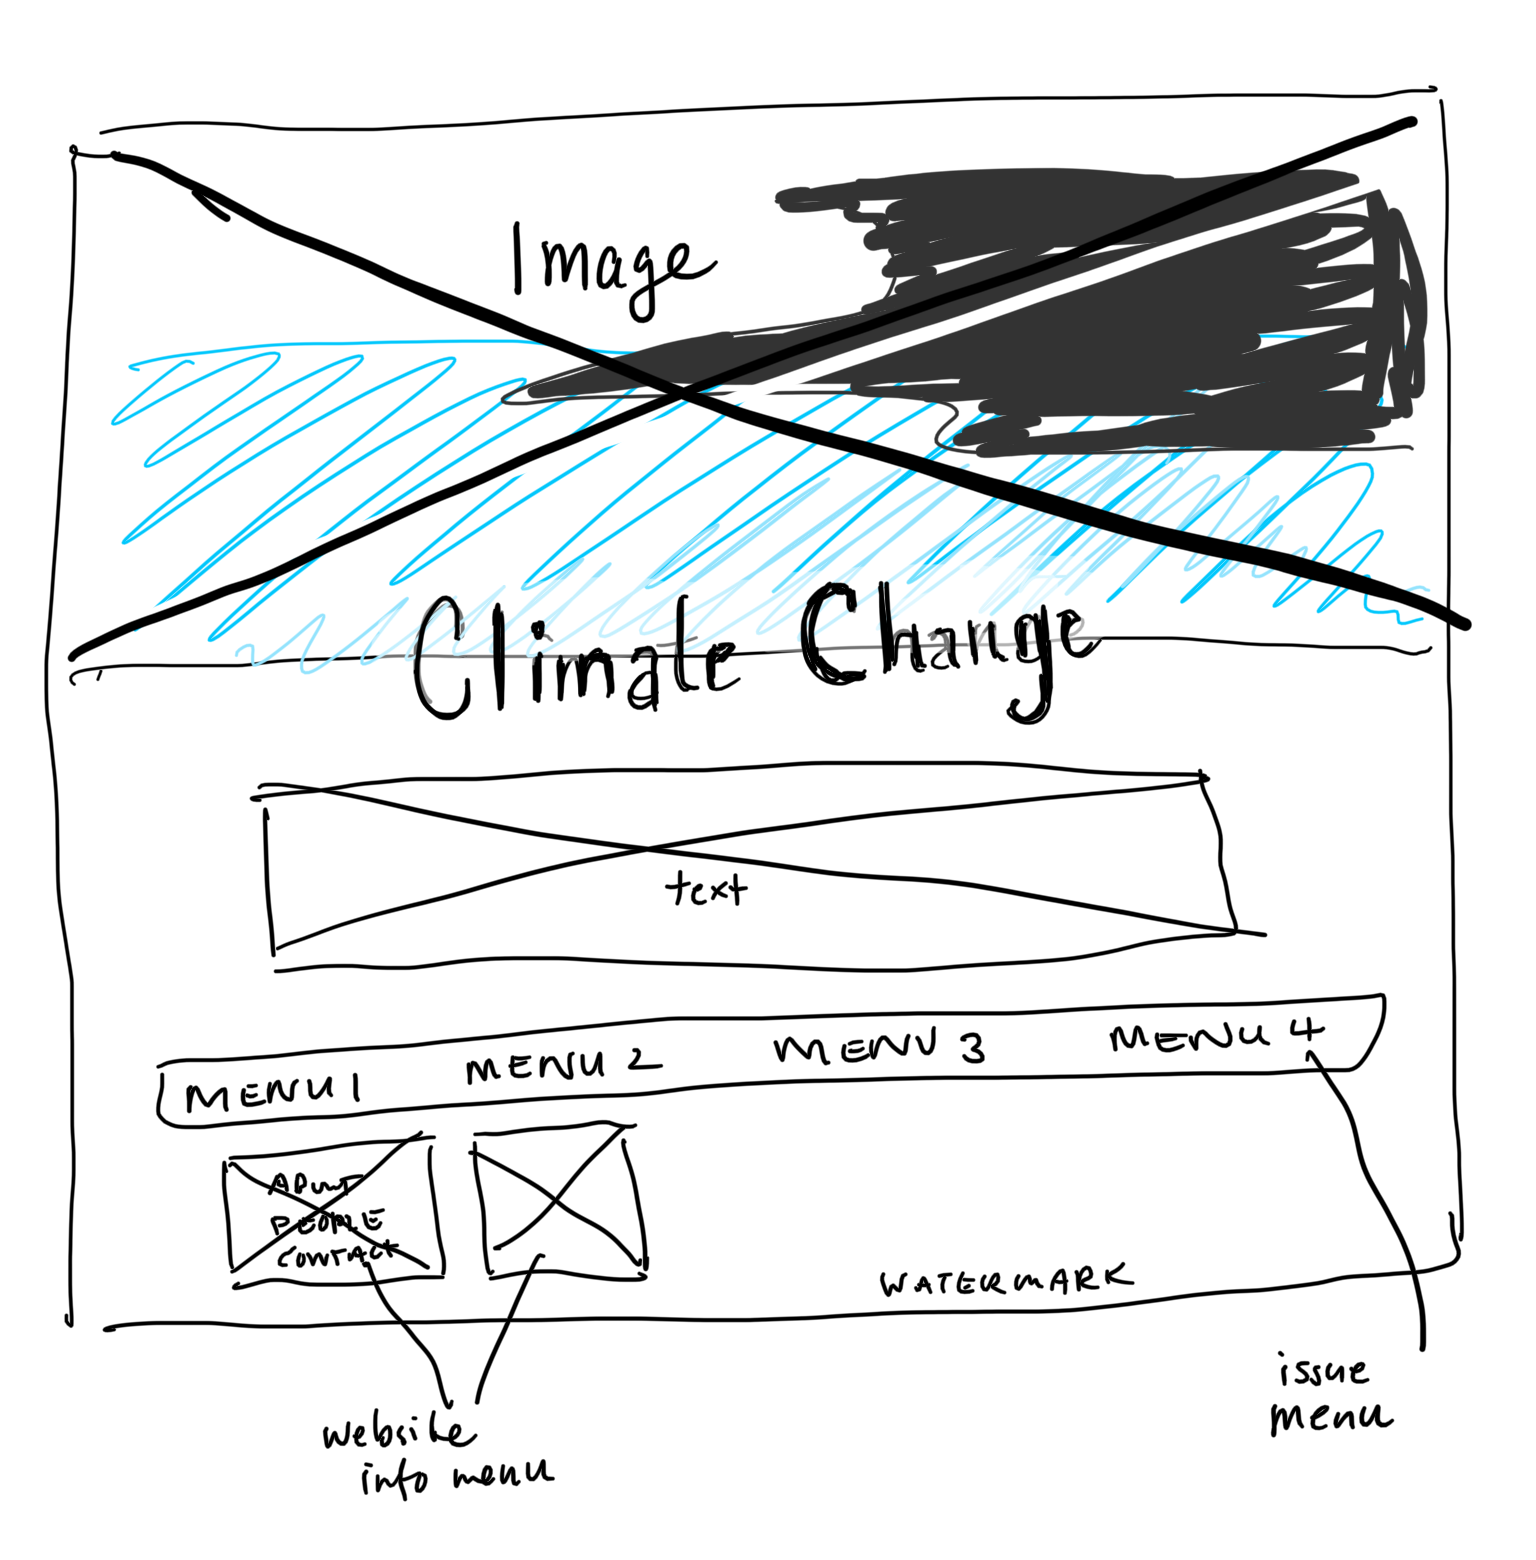 Image
Climate Change
text
MENU 1 MENU 2 MENU 3 MENU 4
ABOUT
PEOPLE
CONTACT
WATERMARK
website
info menu
issue
menu